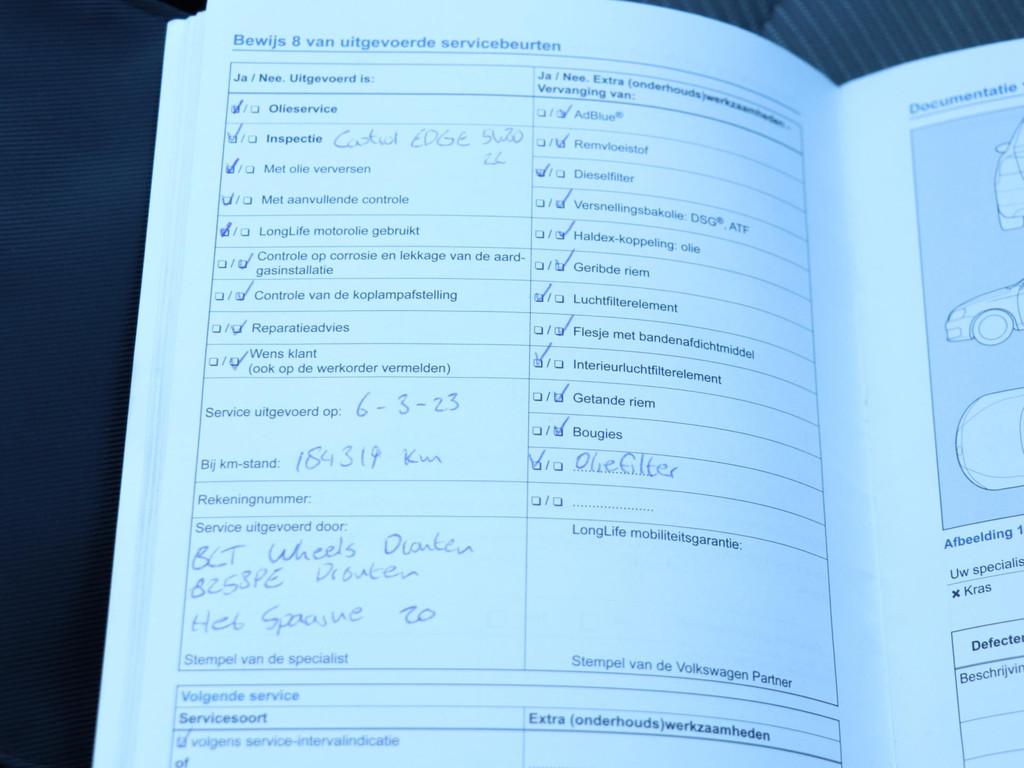 Bewijs 8 van uitgevoerde servicebeurten
Ja / Nee. Uitgevoerd is:
Olieservice
Inspectie Castrol EDGE 5W30
Met olie verversen
Met aanvullende controle
LongLife motorolie gebruikt
Controle op corrosie en lekkage van de aard-
gasinstallatie
Controle van de koplampafstelling
Reparatieadvies
Wens klant
(ook op de werkorder vermelden)
Service uitgevoerd op: 6-3-23
Bij km-stand: 184319 Km
Rekeningnummer:
Service uitgevoerd door:
BCT Wheels Dronten
8253PE Dronten
Het Spaarne 20
Stempel van de specialist
Ja / Nee. Extra (onderhouds)werkzaamheden -
Vervanging van:
AdBlue®
Remvloeistof
Dieselfilter
Versnellingsbakolie: DSG®, ATF
Haldex-koppeling: olie
Geribde riem
Luchtfilterelement
Flesje met bandenafdichtmiddel
Interieurluchtfilterelement
Getande riem
Bougies
Oliefilter
LongLife mobiliteitsgarantie:
Stempel van de Volkswagen Partner
Volgende service
Servicesoort
Extra (onderhouds)werkzaamheden
volgens service-intervalindicatie
of
Documentatie
Afbeelding 1
Uw specialis
× Kras
Defecte
Beschrijvin